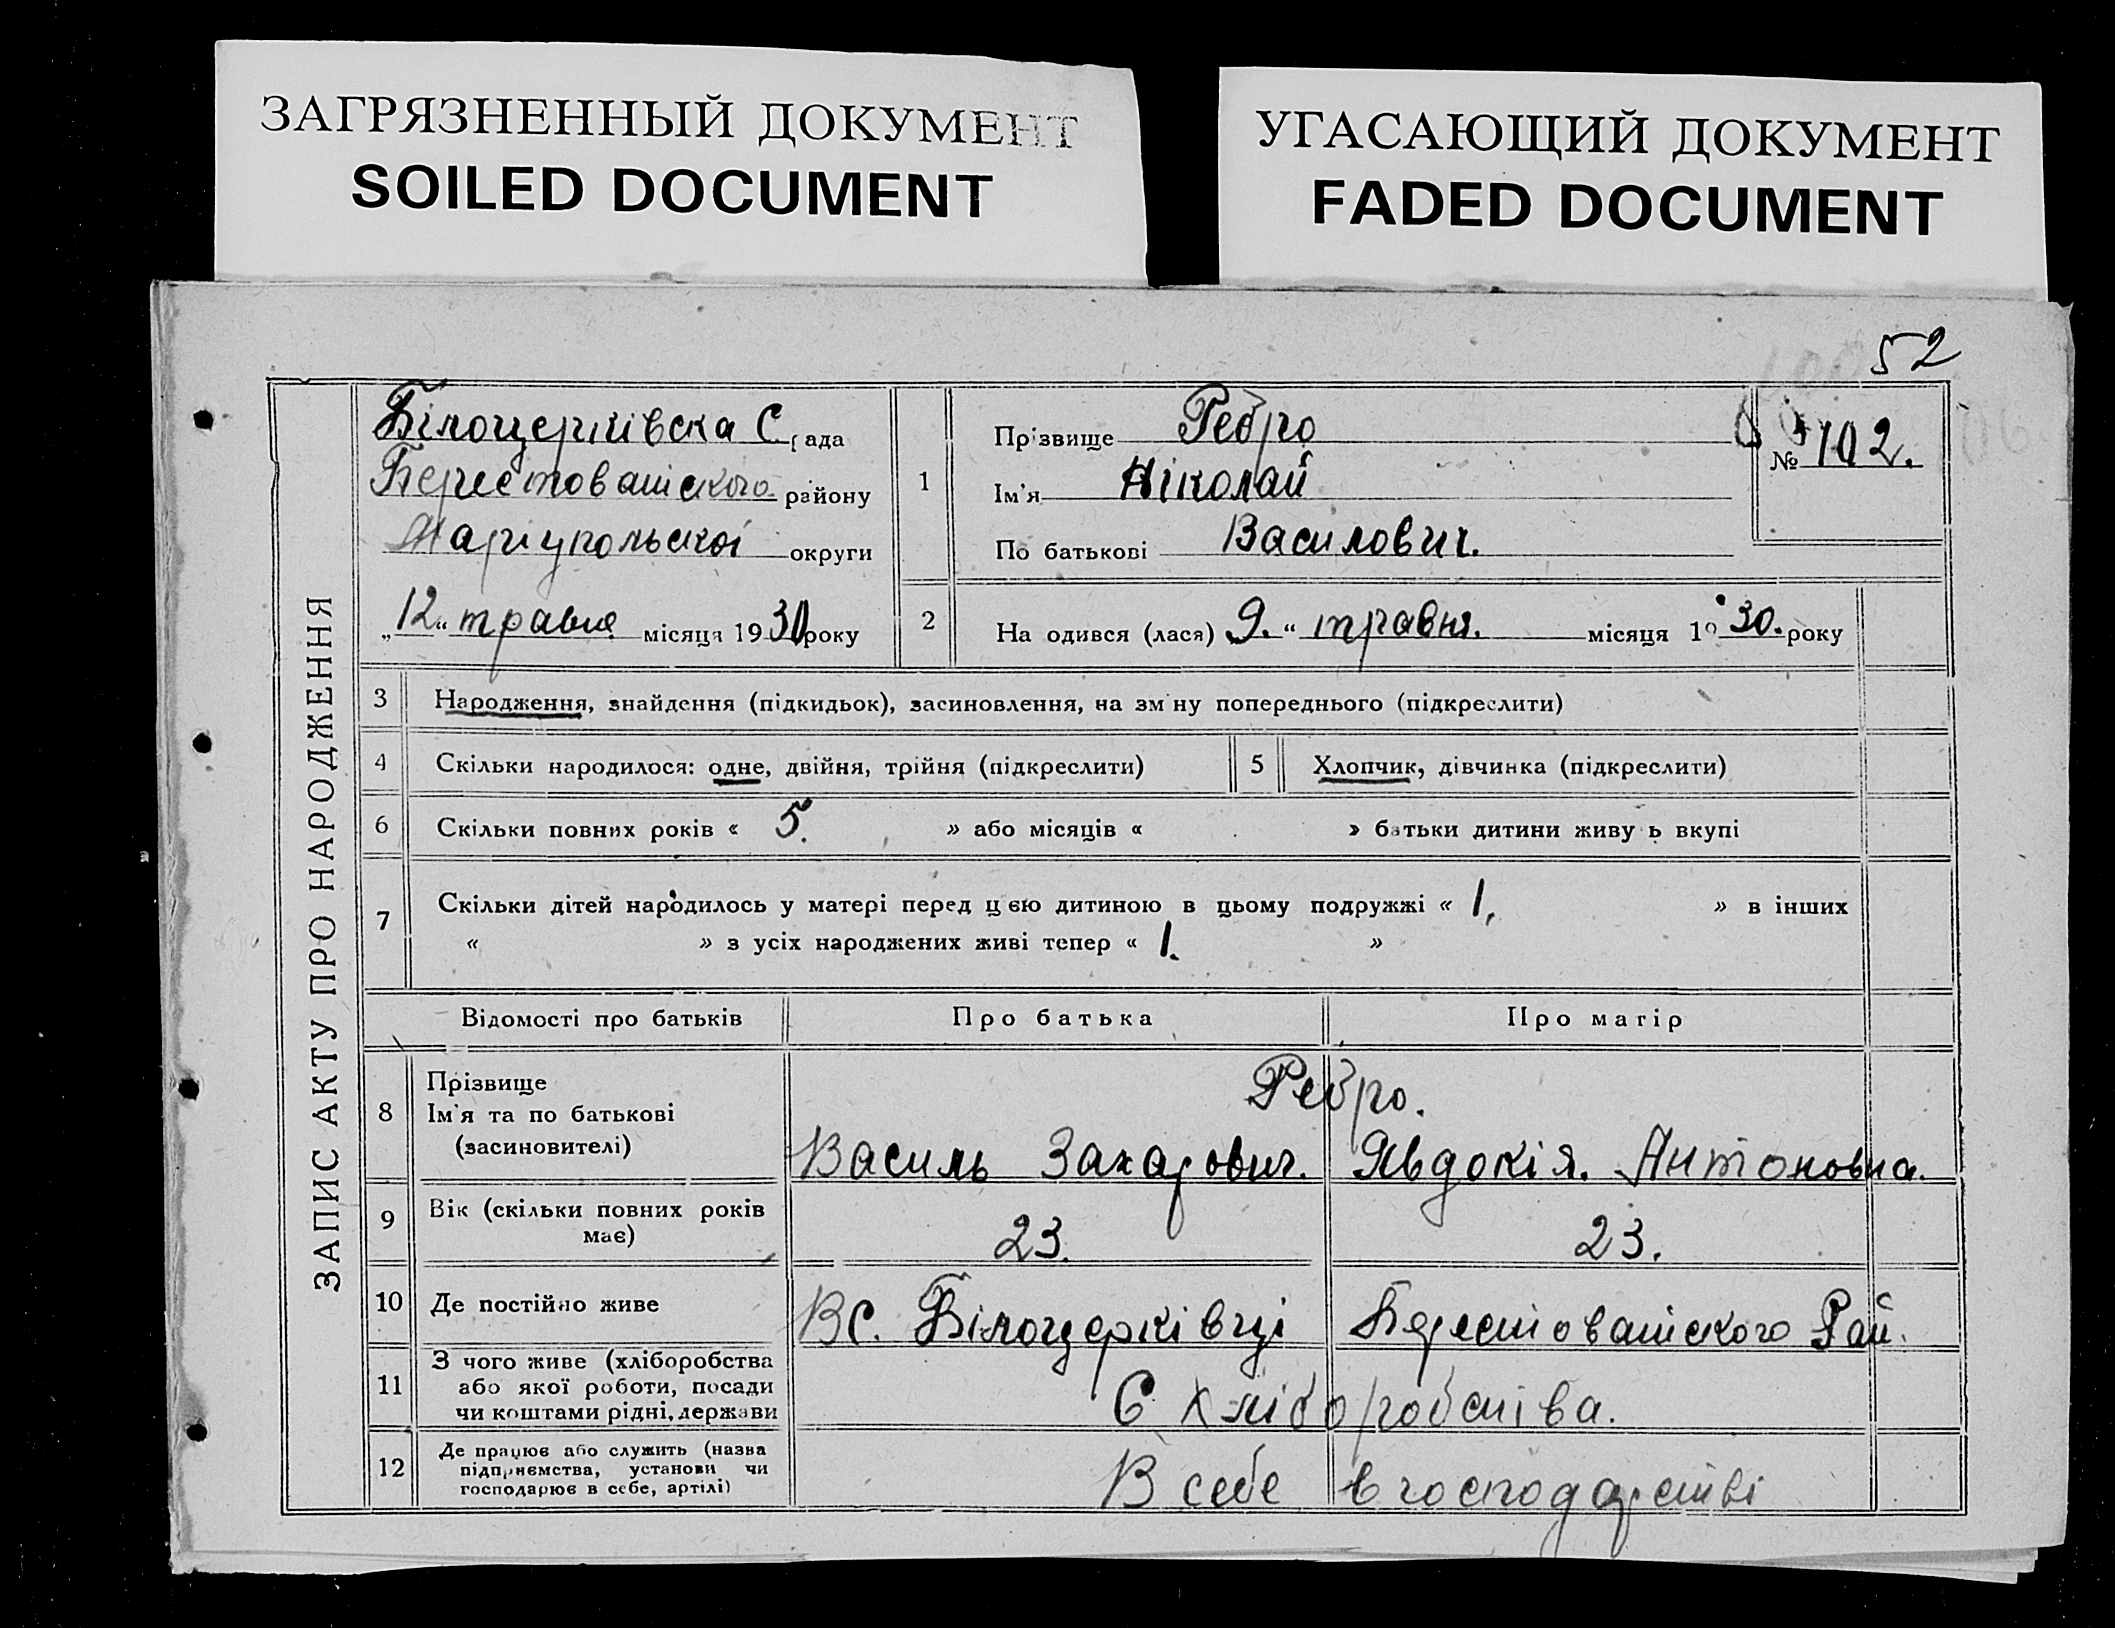 ЗАГРЯЗНЕННЫЙ ДОКУМЕНТ
SOILED DOCUMENT
УГАСАЮЩИЙ ДОКУМЕНТ
FADED DOCUMENT
52
ЗАПИС АКТУ ПРО НАРОДЖЕННЯ
Білоцерківська С. рада
Берестоватського району
Маріупольскої округи
„12" травня місяця 1930 року
1
Прізвище Ребро
Ім'я Ніколай
По батькові Василович.
№ 102.
2
На одився (лася) 9. " травня. місяця 19 30. року
3 Народження, знайдення (підкидьок), засиновлення, на зм ну попереднього (підкреслити)
4 Скільки народилося: одне, двійня, трійня (підкреслити)
5 Хлопчик, дівчинка (підкреслити)
6 Скільки повних років « 5. » або місяців « » батьки дитини живу ь вкупі
7 Скільки дітей народилось у матері перед цею дитиною в цьому подружжі « 1, » в інших
« » з усіх народжених живі тепер « 1. »
Відомості про батьків Про батька Про матір
8 Прізвище
Ім'я та по батькові
(засиновителі)
Ребро.
Василь Захарович. Явдокія. Антоновна.
9 Вік (скільки повних років
має)
23. 23.
10 Де постійно живе
В с. Білоцерківці Берестоватського Рай.
11 З чого живе (хліборобства
або якої роботи, посади
чи коштами рідні, держави
С хліборобства.
12 Де працює або служить (назва
підприємства, установи чи
господарює в себе, артілі)
В себе в господарстві